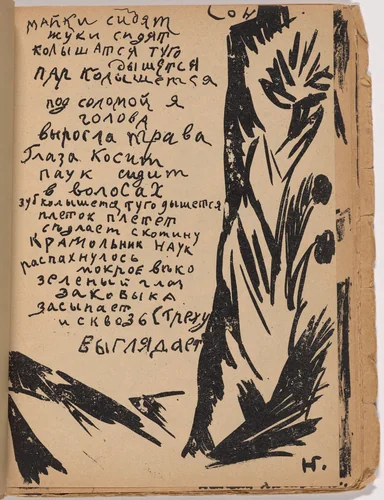 Сон
майки сидят
жуки сидят
колышатся туго
дышится
пар колышется
под соломой я
голова
выросла трава
Глаза косит
паук сидит
в волосах
зуб колышется туго дышется
плеток плетет
спугает скотину
крамольник наук
распахнулось
мокрое веко
зеленый глаз
закобыка
засыпает
и сквозь стреху
выглядает
Нг.